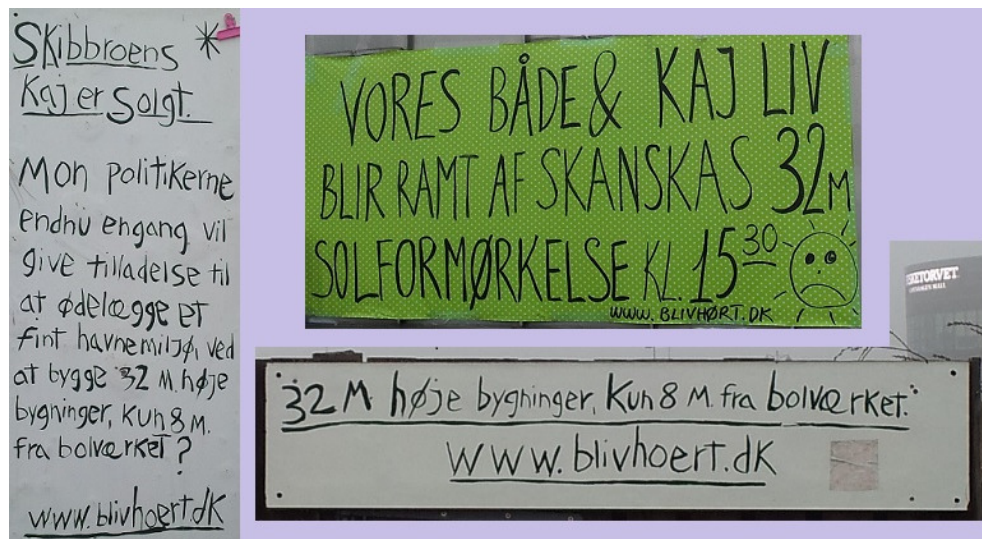 Skibbroens
Kaj er Solgt.
Mon politikerne
endnu engang vil
give tilladelse til
at ødelægge et
fint havnemiljø, ved
at bygge 32 M. høje
bygninger, kun 8 M.
fra bolværket?
www.blivhoert.dk
VORES BÅDE & KAJ LIV
BLIR RAMT AF SKANSKAS 32M
SOLFORMØRKELSE KL. 15 30
WWW. BLIVHØRT.DK
32 M. høje bygninger, Kun 8 M. fra bolværket.
www.blivhoert.dk